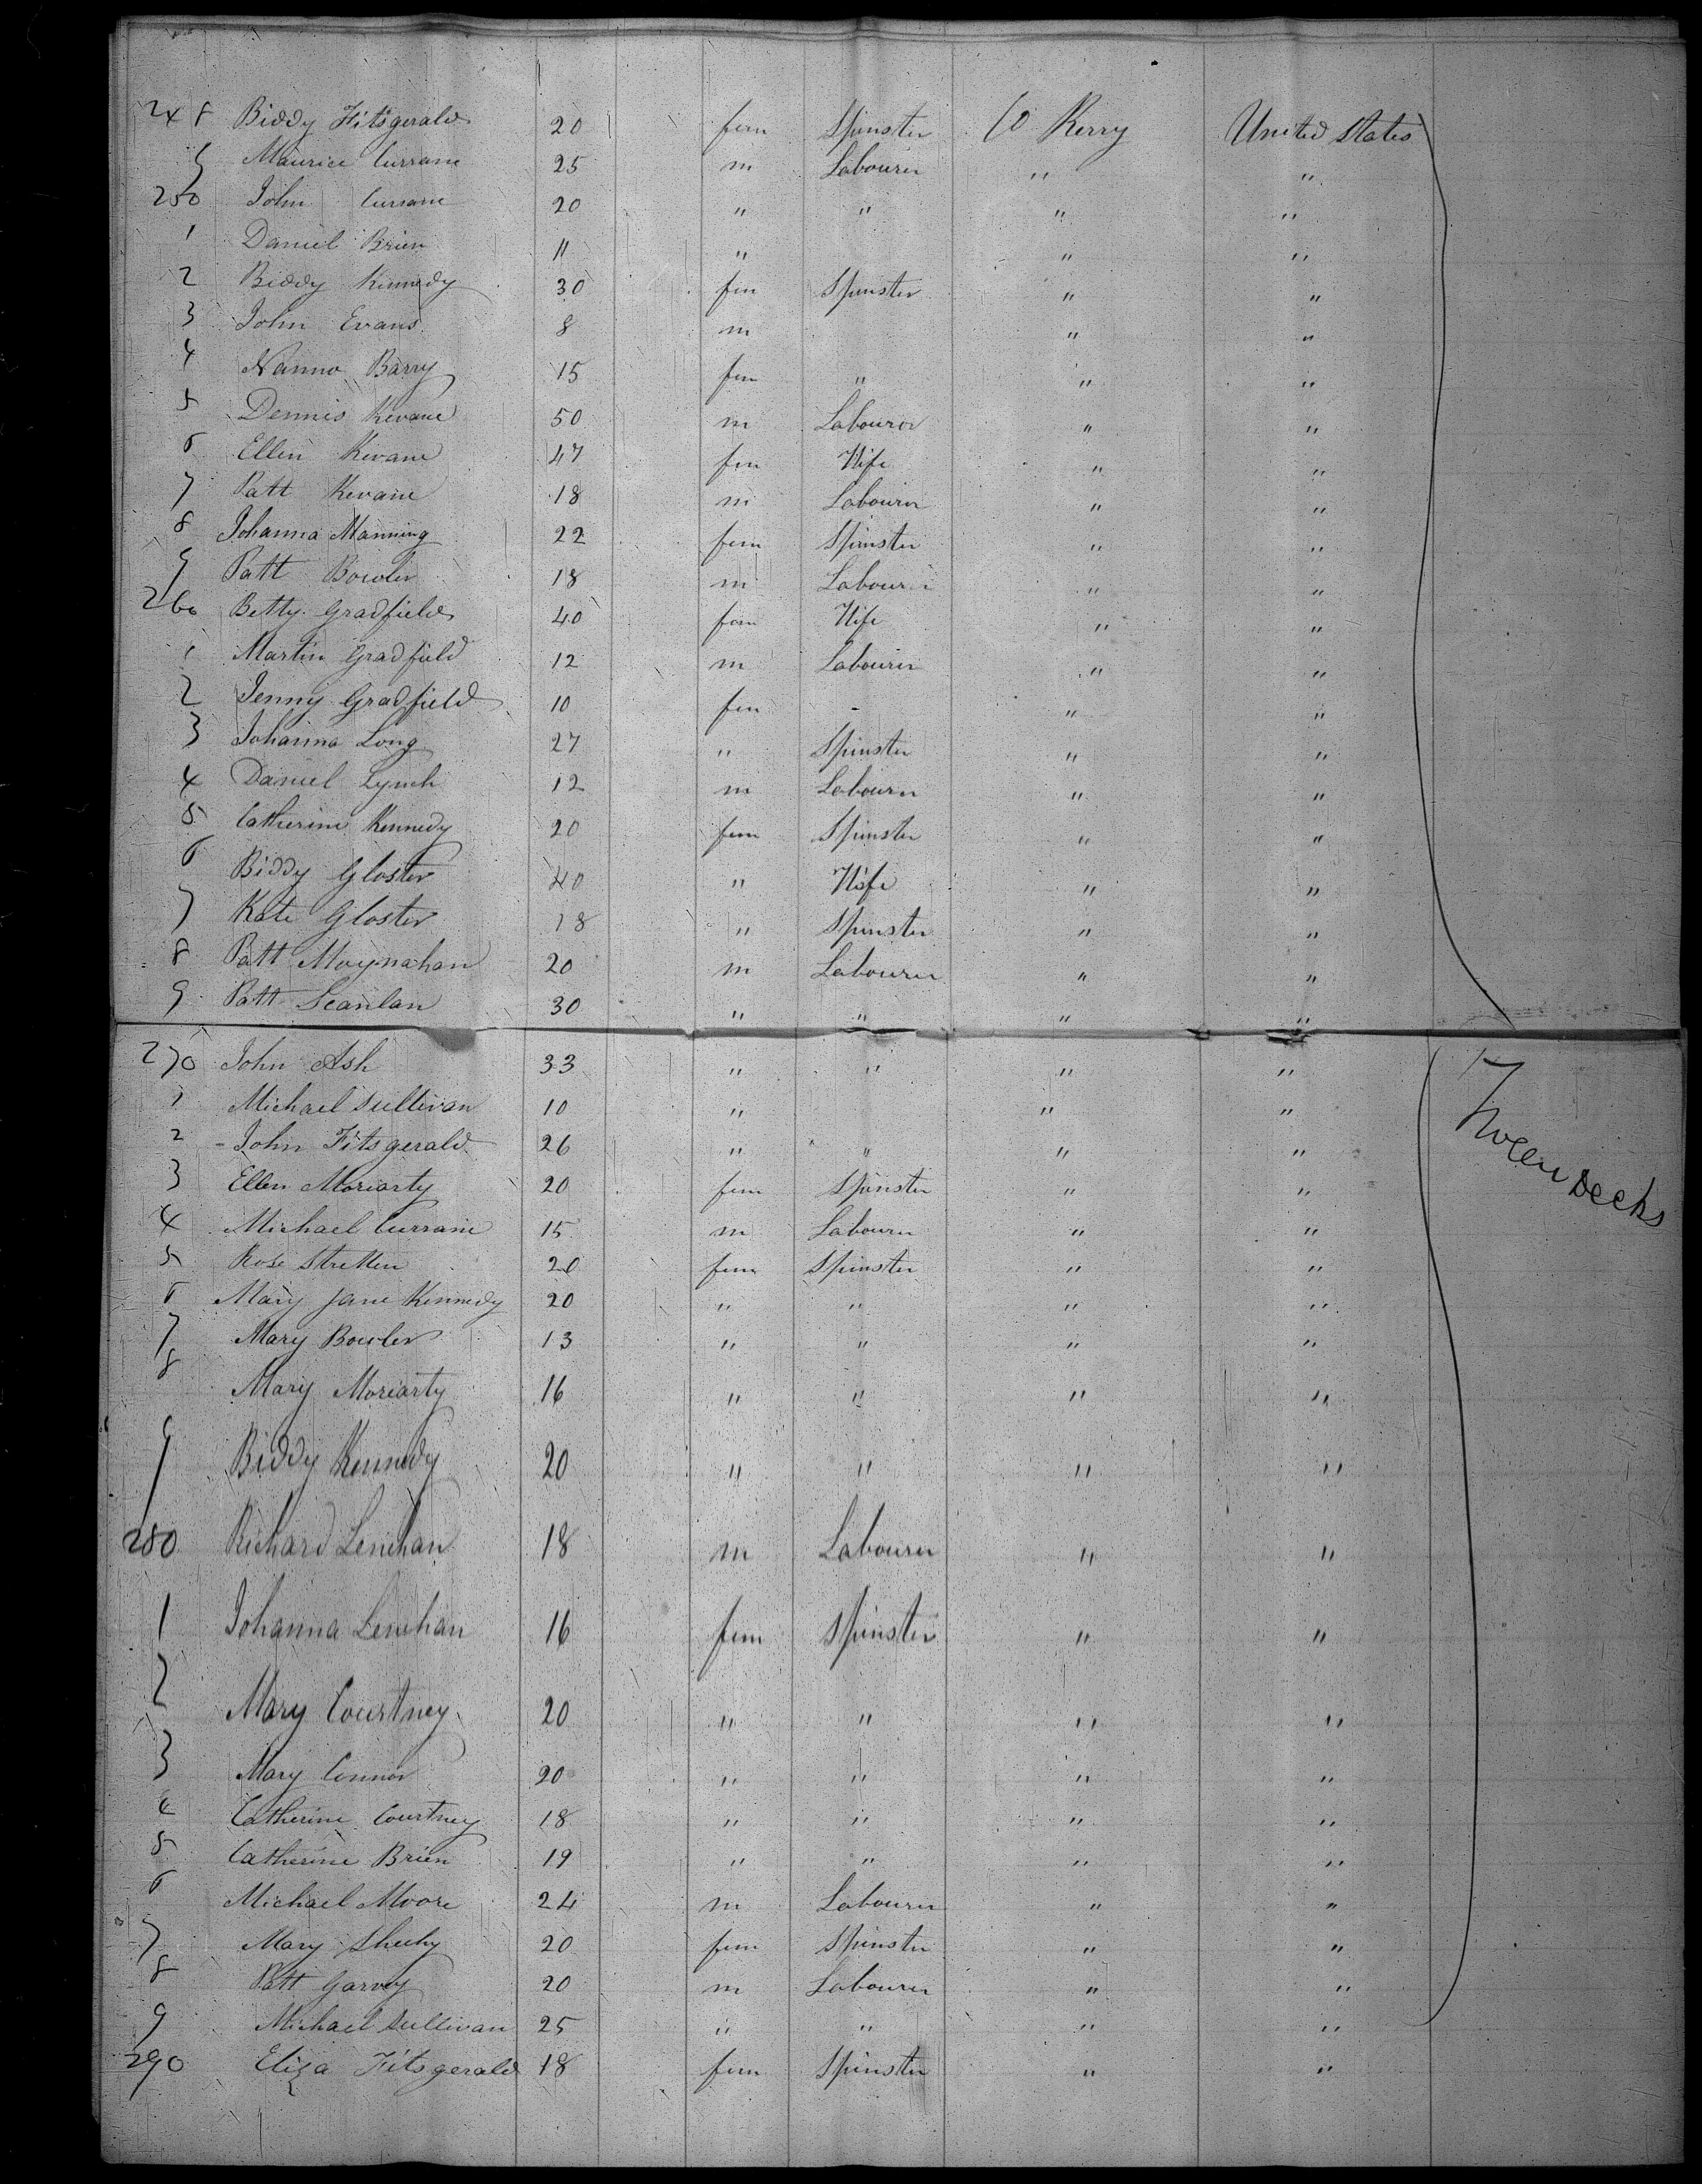 248 Biddy Fitsgerald 20 fem Spinster Co Kerry United States
9 Maurice Currane 25 m Labourer " "
250 John Currane 20 " " " "
1 Daniel Brien 11 " " "
2 Biddy Kennedy 30 fem Spinster " "
3 John Evans 8 m " "
4 Nanno Barry 15 fem " " "
5 Dennis Kevane 50 m Labourer " "
6 Ellen Kevane 47 fem Wife " "
7 Patt Kevane 18 m Labourer " "
8 Johanna Manning 22 fem Spinster " "
9 Patt Bowler 18 m Labourer " "
260 Betty Gradfield 40 fem Wife " "
1 Martin Gradfield 12 m Labourer " "
2 Jenny Gradfield 10 fem - " "
3 Johanna Long 27 " Spinster " "
4 Daniel Lynch 12 m Labourer " "
5 Catherine Kennedy 20 fem Spinster " "
6 Biddy Gloster 40 " Wife " "
7 Kate Gloster 18 " Spinster " "
8 Patt Moynahan 20 m Labourer " "
9 Patt Scanlan 30 " " " "
270 John Ash 33 " " " "
1 Michael Sullivan 10 " " "
2 John Fitsgerald 26 " " " "
3 Ellen Moriarty 20 fem Spinster " "
Tween Decks
4 Michael Currane 15 m Labourer " "
5 Rose Stretten 20 fem Spinster " "
6 Mary Jane Kennedy 20 " " " "
7 Mary Bowler 13 " " " "
8 Mary Moriarty 16 " " " "
9 Biddy Kennedy 20 " " " "
280 Richard Lenehan 18 m Labourer " "
1 Johanna Lenehan 16 fem Spinster " "
2 Mary Courtney 20 " " " "
3 Mary Connor 20 " " " "
4 Catherine Courtney 18 " " " "
5 Catherine Brien 19 " " " "
6 Michael Moore 24 m Labourer " "
7 Mary Sheehy 20 fem Spinster " "
8 Patt Garvey 20 m Labourer " "
9 Michael Sullivan 25 " " " "
290 Eliza Fitsgerald 18 fem Spinster " "